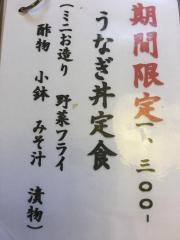 期間限定 一、三〇〇-
うなぎ丼定食
(ミニお造り 野菜フライ
酢物 小鉢 みそ汁 漬物)